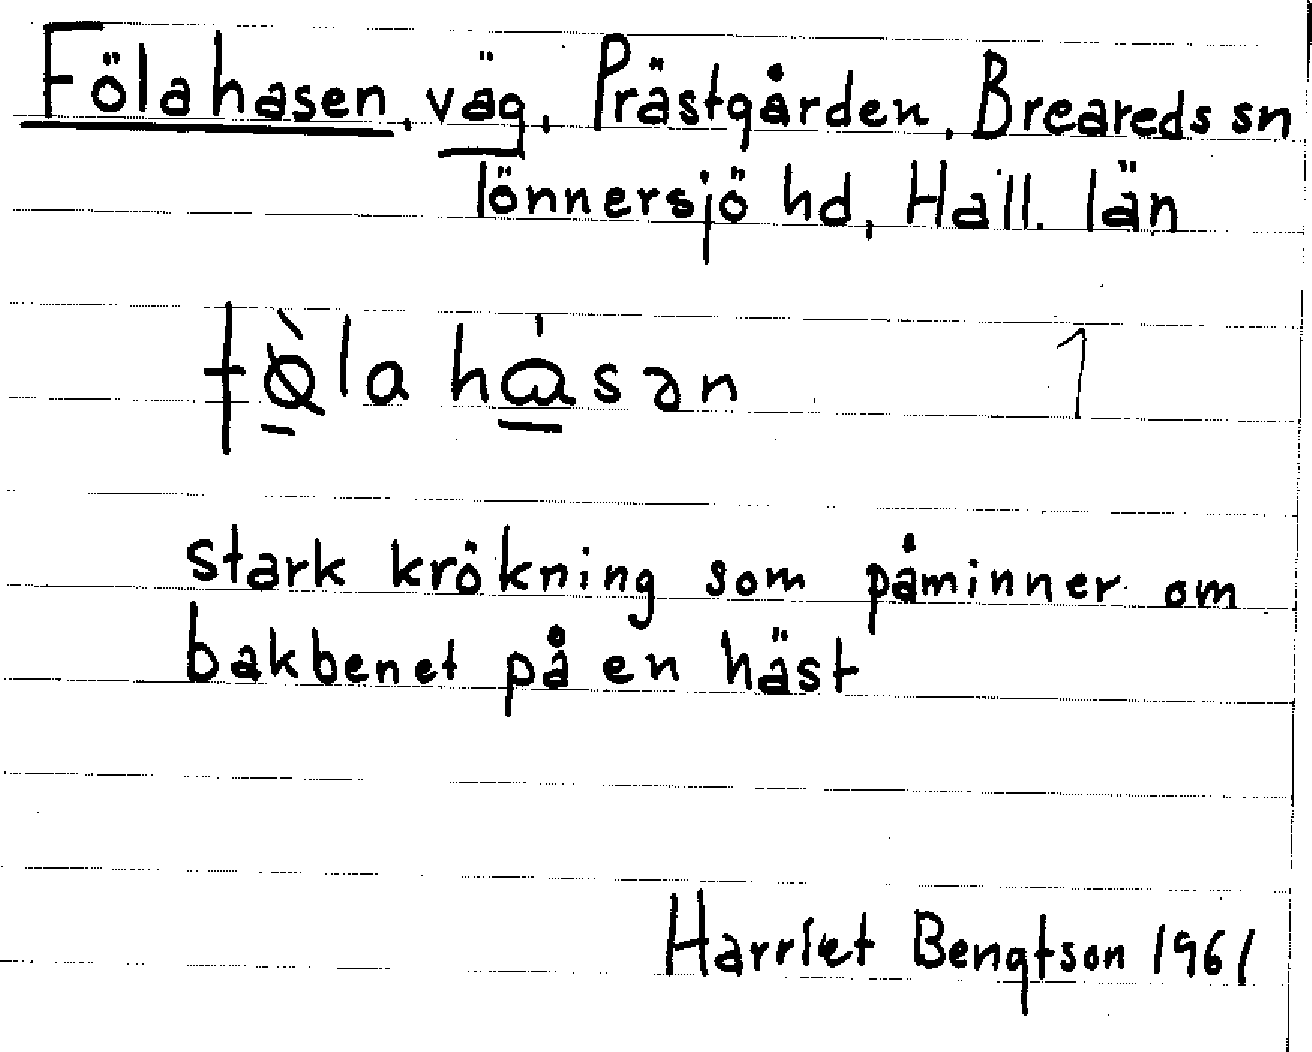 Fölahasen, väg, Prästgården, Breareds sn
Tönnersjö hd, Hall. län
fø̀la hásən 1
stark krökning som påminner om
bakbenet på en häst
Harriet Bengtson 1961